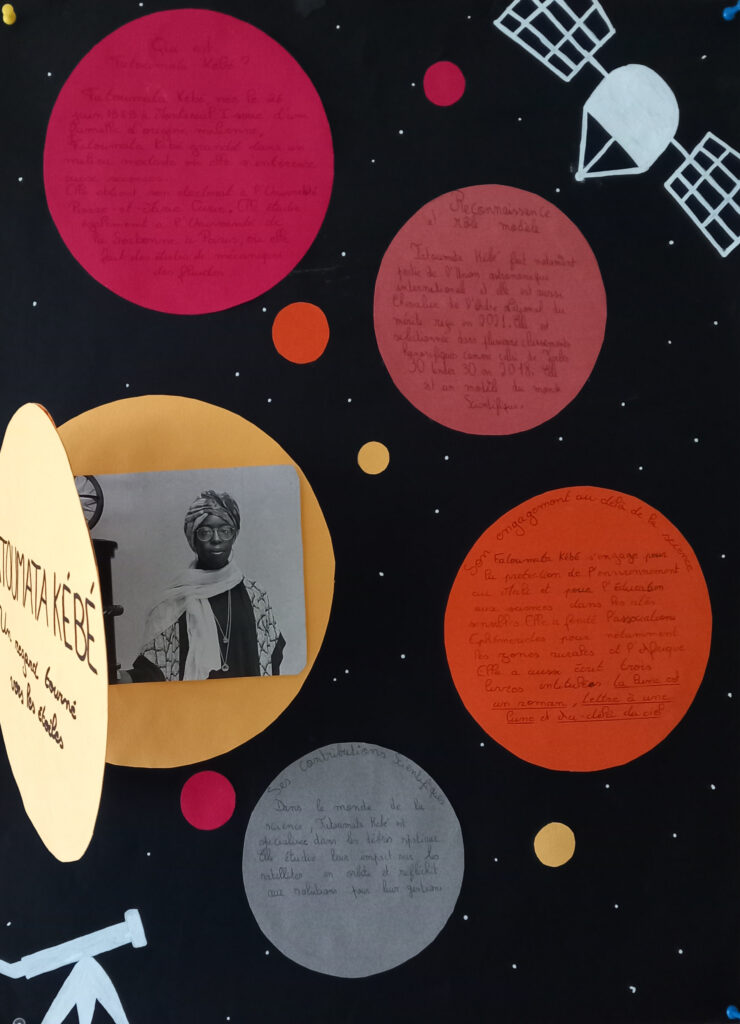 Qui est
Fatoumata Kébé?
Fatoumata Kébé, née le 26
juin 1985 à Montreuil I issue d'une
famille d'origine malienne.
Fatoumata Kébé grandit dans un
milieu modeste où elle s'intéresse
aux sciences.
Elle obtient son doctorat à l'Université
Pierre-et-Marie Curie. Elle étudie
également à l'Université de
la Sorbonne à Paris, où elle
fait des études de mécanique
des fluides
Reconnaissence
rôle modèle
Fatoumata Kébé fait notamment
partie de l'Union astronomique
international et elle est aussi
Chevalier de l'Ordre National du
mérite reçu en 2021. Elle est
sélectionnée dans plusieurs classements
honorifiques comme celui de Forbes
30 under 30 en 2018. Elle
est un modèle du monde
Scientifique.
TOUMATA KÉBÉ
Un regard tourné
vers les étoiles
Son engagement au-delà de la science
Fatoumata Kébé s'engage pour
la protection de l'environnement
au Mali et pour l'éducation
aux sciences dans les cités
sensibles Elle à fondé l'association
Ephémerides pour notamment
les zones rurales et l'Afrique
Elle a aussi écrit trois
livres intitulés la lune est
un roman, Lettre à une
lune et Au-délà du ciel
Ses contributions Scientifiques
Dans le monde de la
science, Fatoumata Kébé est
spécialisée dans les débris spatiaux
Elle étudie leur impact sur les
satellites en orbite et réfléchit
aux solutions pour leur gestion